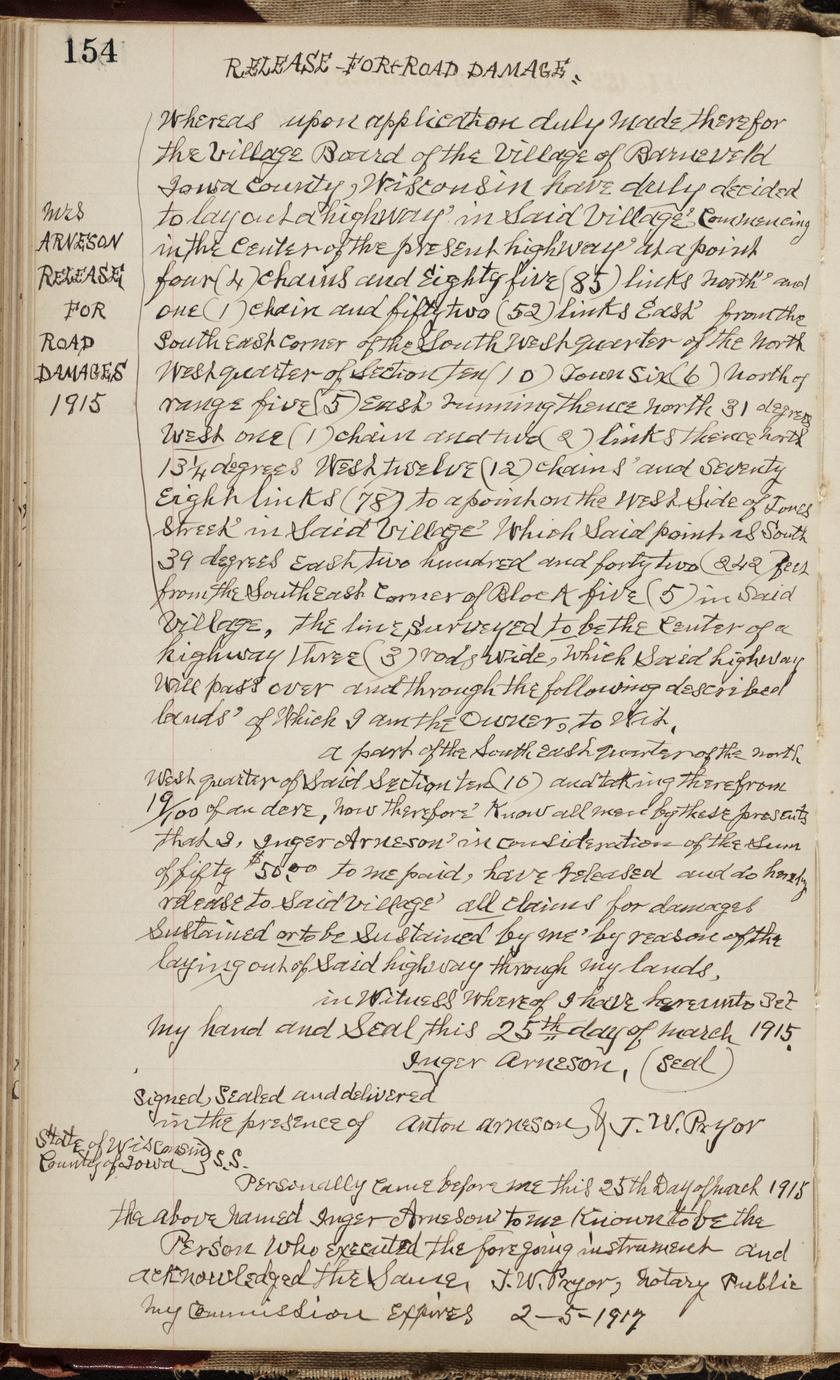 154
RELEASE-FOR-ROAD DAMAGE.
Whereas upon application duly made therefor
the Village Board of the Village of Barneveld
Iowa County, Wisconsin have duly decided
to lay out a highway in Said Village, Commencing
in the Center of the present highway at a point
four (4) chains and Eighty five (85) links north and
one (1) chain and fifty two (52) links East from the
South East Corner of the South West quarter of the North
West quarter of Section ten (10) Town Six (6) North of
range five (5) East running thence north 31 degrees
West one (1) chain and two (2) links thence north
13¼ degrees West twelve (12) chains and Seventy
Eight links (78) to a point on the West Side of Jones
Street in Said Village Which Said point is South
39 degrees East two hundred and forty two (242) feet
from the South east Corner of Block five (5) in Said
Village, the line surveyed to be the Center of a
highway three (3) rods wide, Which Said highway
Will pass over and through the following described
lands of Which I am the Owner, to Wit,
a part of the South East quarter of the north
West quarter of Said Section ten (10) and taking therefrom
19/100 of an acre, now therefore Know all men by these presents
that I, Inger Arneson in consideration of the Sum
of fifty $50.00 to me paid, have released and do hereby
release to Said Village all claims for damages
Sustained or to be Sustained by me by reason of the
laying out of Said highway through my lands,
in Witness Where of I have hereunto Set
my hand and Seal this 25th day of march 1915.
Inger Arneson, (Seal)
Signed, Sealed and delivered
in the presence of Anton Arneson, & J. W. Pryor
State of Wisconsin
County of Iowa } S.S.
Personally Came before me this 25th Day of march 1915
the above named Inger Arneson to me Known to be the
Person Who executed the foregoing instrument and
acknowledged the Same, J. W. Pryor, Notary Public
my Commission Expires 2-5-1917
Mrs
ARNESON
RELEASE
FOR
ROAD
DAMAGES
1915